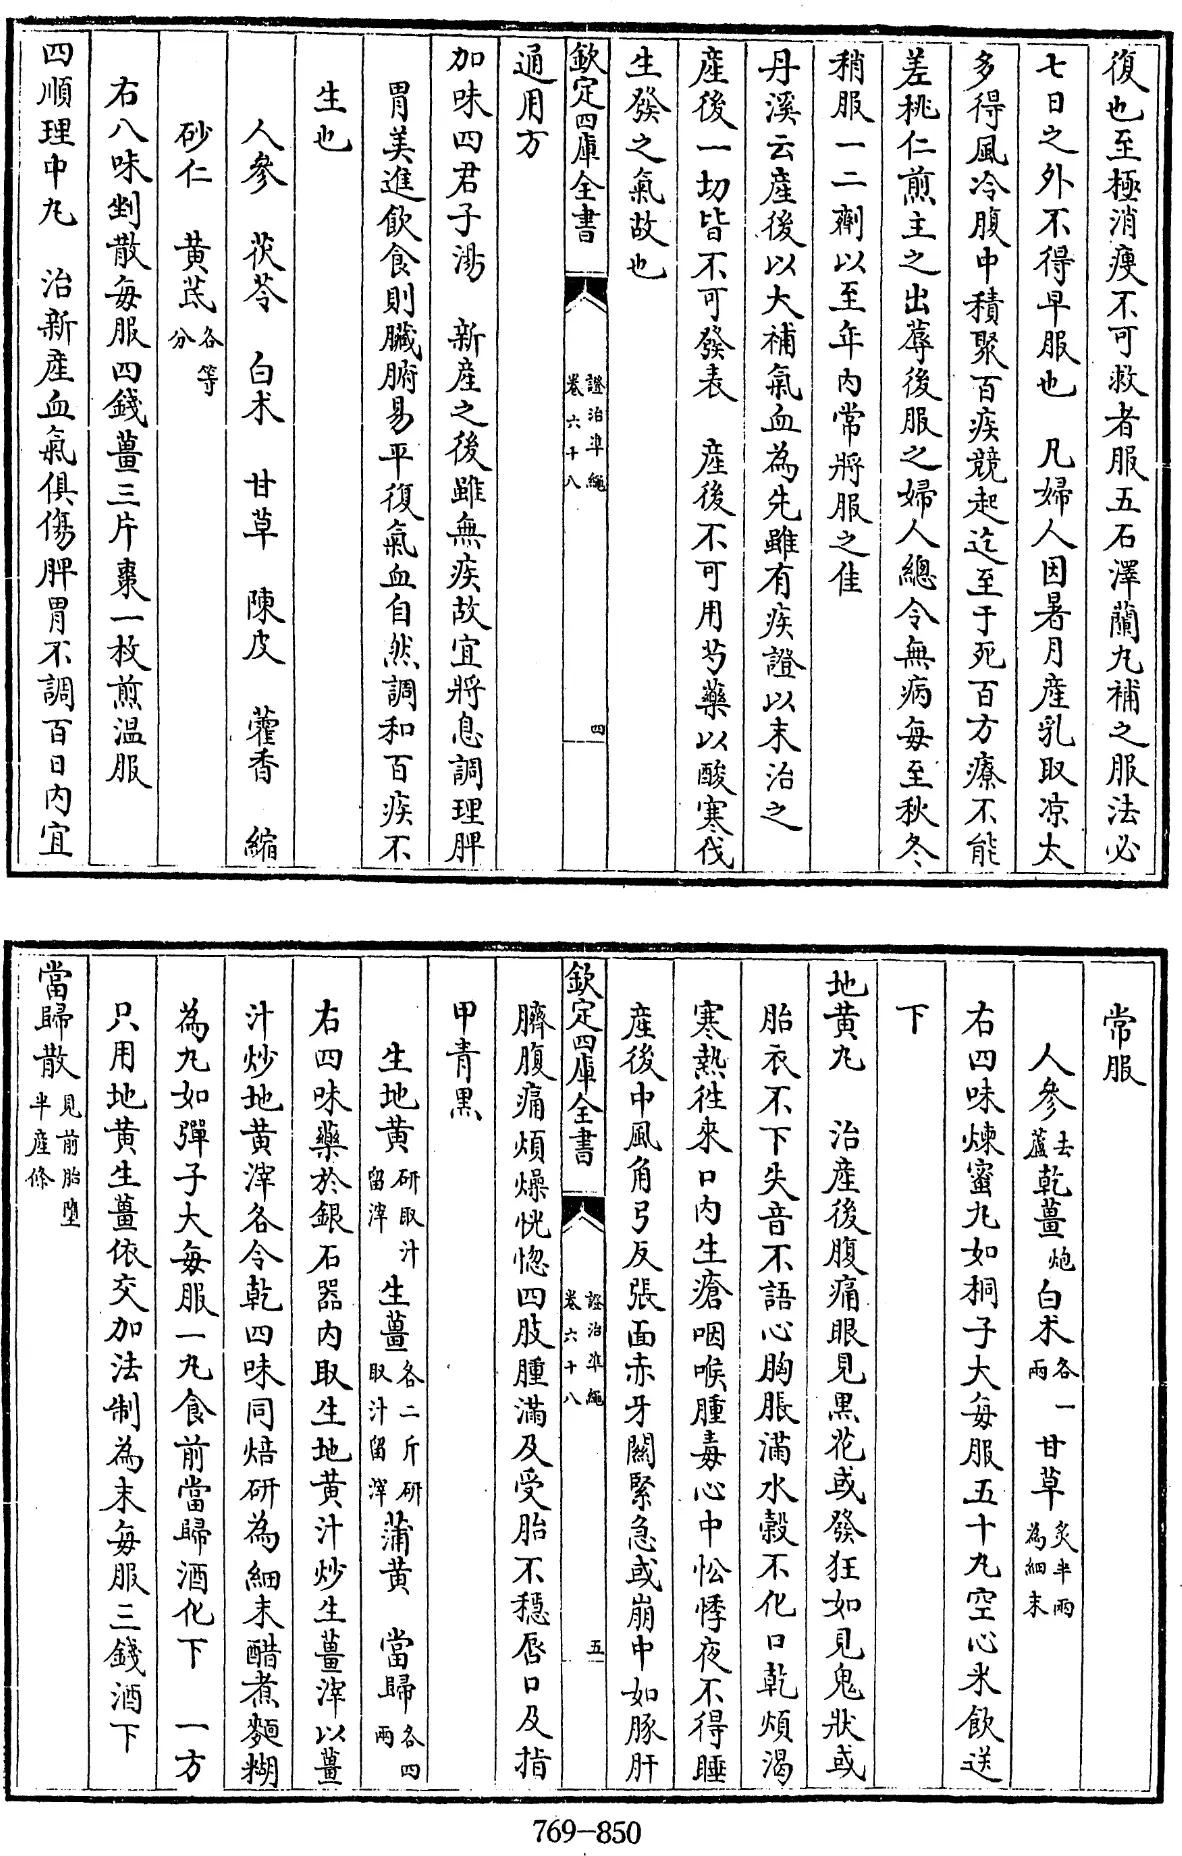 復也至極消瘦不可救者服五石澤蘭丸補之服法必
七日之外不得早服也　凡婦人因暑月産乳取凉太
多得風冷腹中積聚百疾競起迄至于死百方療不能
差桃仁煎主之出蓐後服之婦人總令無病每至秋冬
稍服一二劑以至年内常將服之佳
丹溪云産後以大補氣血為先雖有疾證以末治之
産後一切皆不可發表　産後不可用芍藥以酸寒伐
生發之氣故也
欽定四庫全書
證治準繩
卷六十八
四
通用方
加味四君子湯　新産之後雖無疾故宜將息調理脾
胃美進飲食則臟腑易平復氣血自然調和百疾不
生也
人參　茯苓　白术　甘草　陳皮　藿香　縮
砂仁　黄茋各等分
右八味剉散每服四錢薑三片棗一枚煎温服
四順理中丸　治新産血氣俱傷脾胃不調百日内宜
常服
人參去蘆乾薑炮白术各一兩甘草炙半兩為細末
右四味煉蜜丸如桐子大每服五十丸空心米飲送
下
地黄丸　治産後腹痛眼見黑花或發狂如見鬼狀或
胎衣不下失音不語心胸脹滿水穀不化口乾煩渴
寒熱往來口内生瘡咽喉腫毒心中忪悸夜不得睡
産後中風角弓反張面赤牙關緊急或崩中如豚肝
欽定四庫全書
證治準繩
卷六十八
五
臍腹痛煩燥恍惚四肢腫滿及受胎不穩唇口及指
甲青黑
生地黄研取汁留滓生薑各二斤研取汁留滓蒲黄　當歸各四兩
右四味藥於銀石器内取生地黄汁炒生薑滓以薑
汁炒地黄滓各令乾四味同焙研為細末醋煮麪糊
為丸如彈子大每服一丸食前當歸酒化下　一方
只用地黄生薑依交加法制為末每服三錢酒下
當歸散見前胎墮半産條
769-850